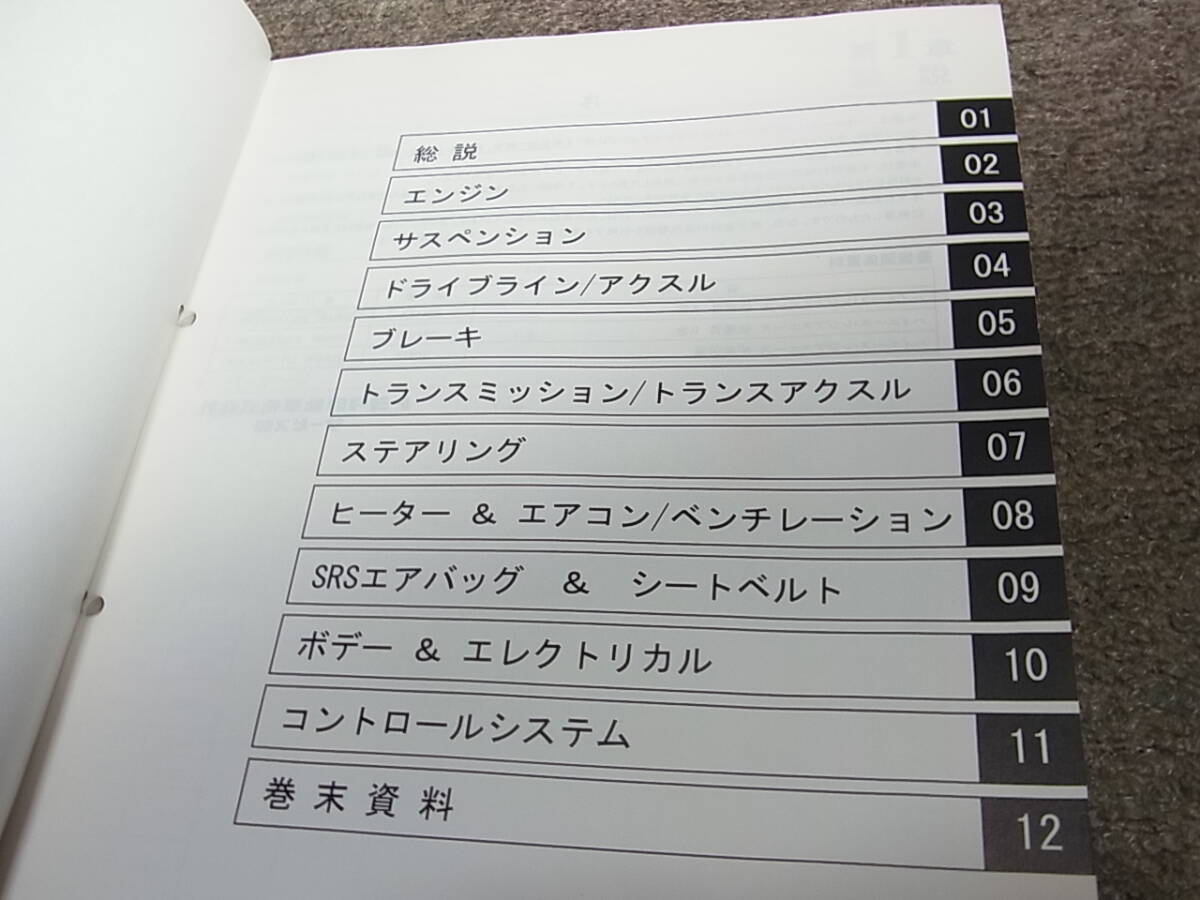 総 説 01
エンジン 02
サスペンション 03
ドライブライン/アクスル 04
ブレーキ 05
トランスミッション/トランスアクスル 06
ステアリング 07
ヒーター & エアコン/ベンチレーション 08
SRSエアバッグ & シートベルト 09
ボデー & エレクトリカル 10
コントロールシステム 11
巻末資料 12